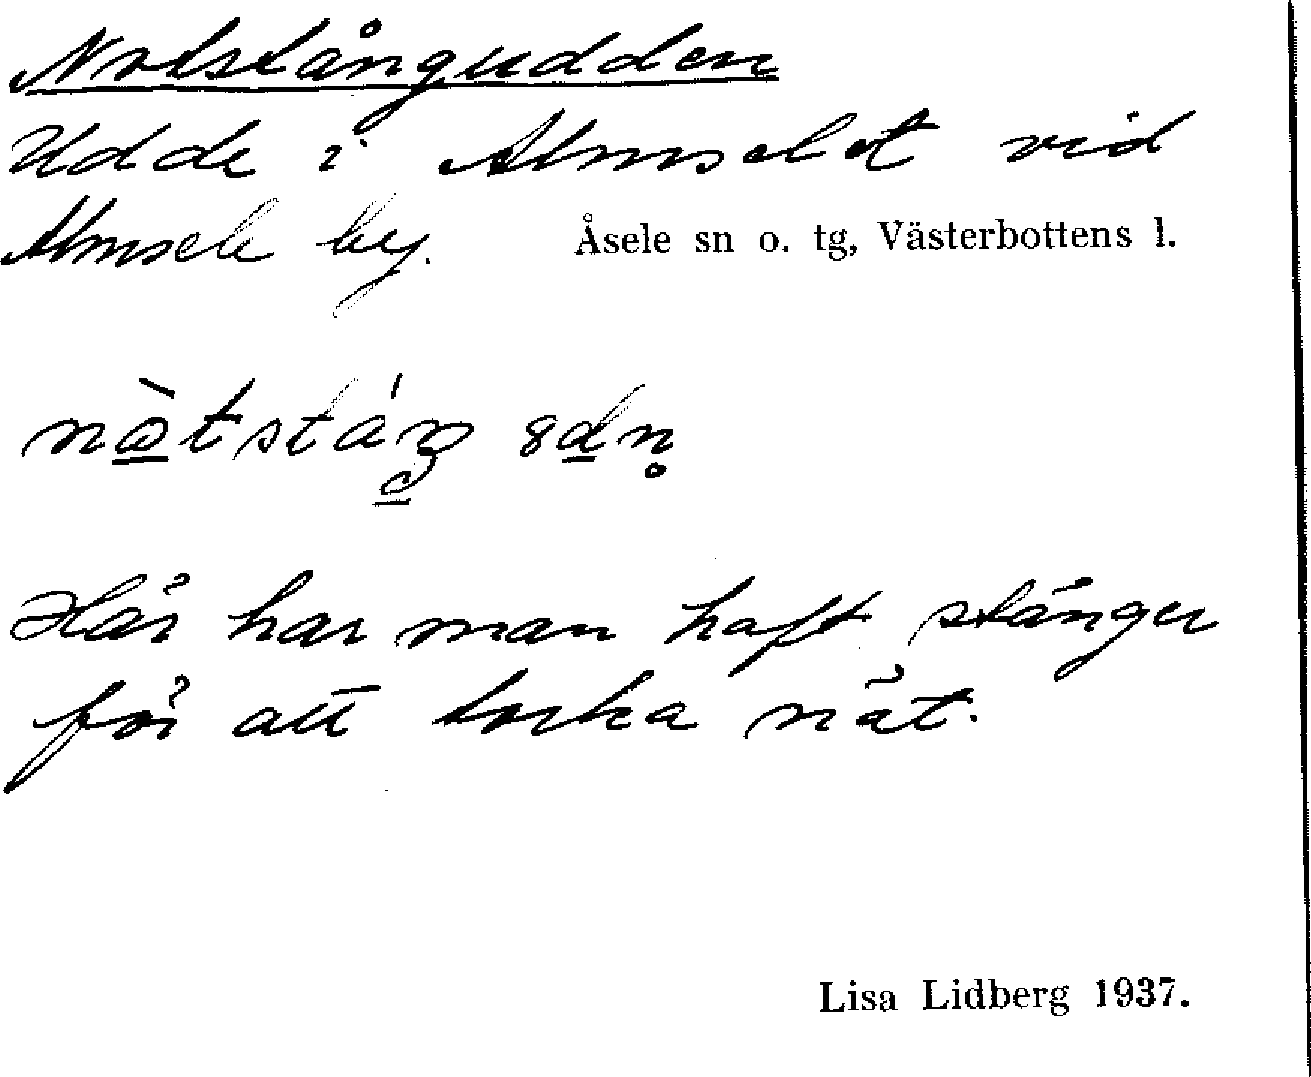 Notstångudden
Udde i Almselet vid
Almsele by. Åsele sn o. tg, Västerbottens l.
Här har man haft stänger
för att torka nät.
Lisa Lidberg 1937.